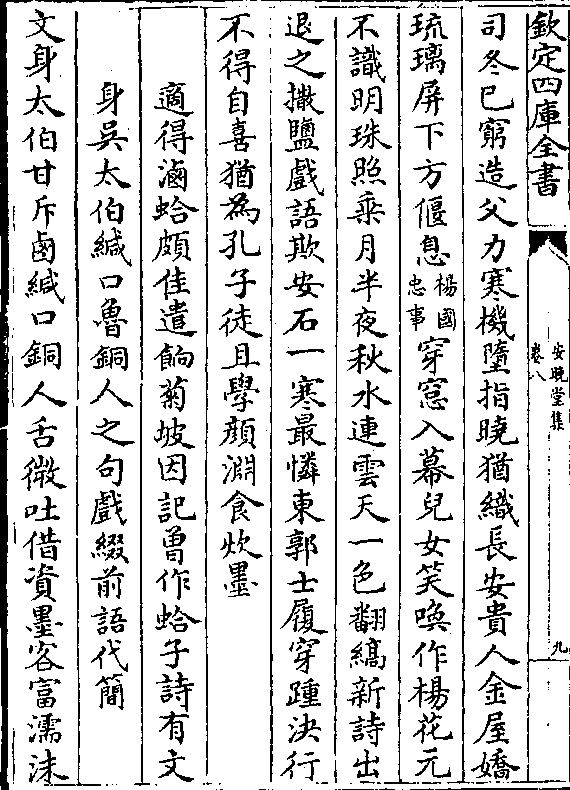 欽定四庫全書
安晚堂集
卷八
九
司冬已窮造父力寒機墮指曉猶織長安貴人金屋嬌
琉璃屏下方偃息楊國忠事穿窓入幕兒女笑喚作楊花元
不識明珠照乘月半夜秋水連雲天一色翻縞新詩出
退之撒鹽戲語欺安石一寒最憐東郭士履穿踵決行
不得自喜猶為孔子徒且學顔淵食炊墨
適得滷蛤頗佳遣餉菊坡因記曽作蛤子詩有文
身吳太伯緘口魯銅人之句戲綴前語代簡
文身太伯甘斥鹵緘口銅人舌微吐借資墨客富濡沫